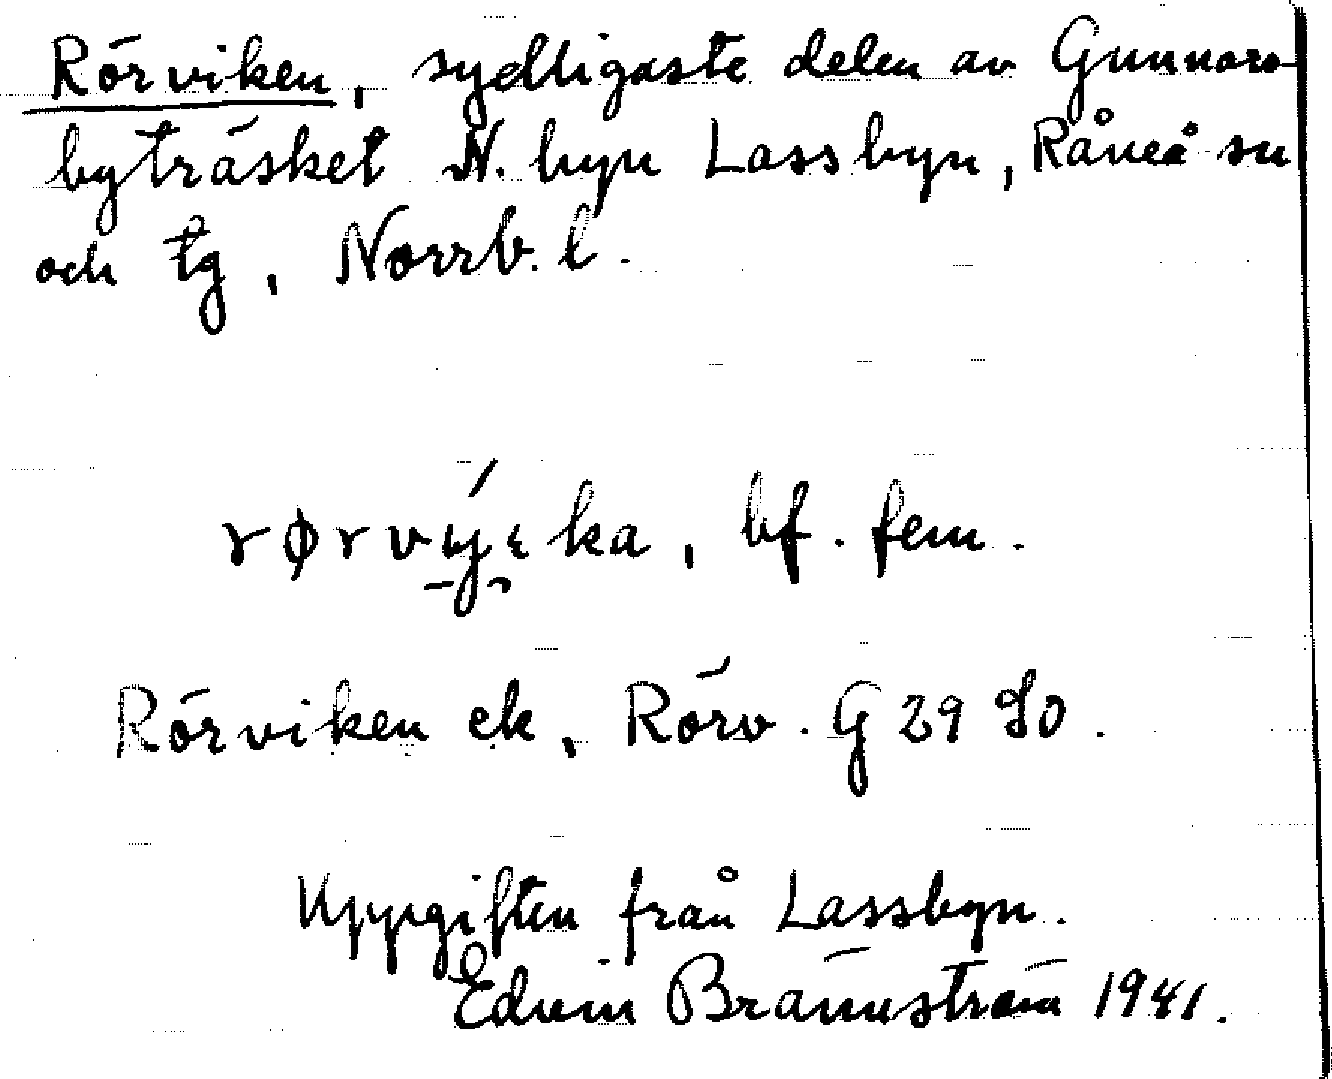 Rörviken, sydligaste delen av Gunnars-
byträsket N. byn Lassbyn, Råneå sn
och tg, Norrb. l.
bf. fem.
Rörviken ek, Rörv. G 29 SO.
Uppgiften från Lassbyn.
Edvin Brännström 1941.